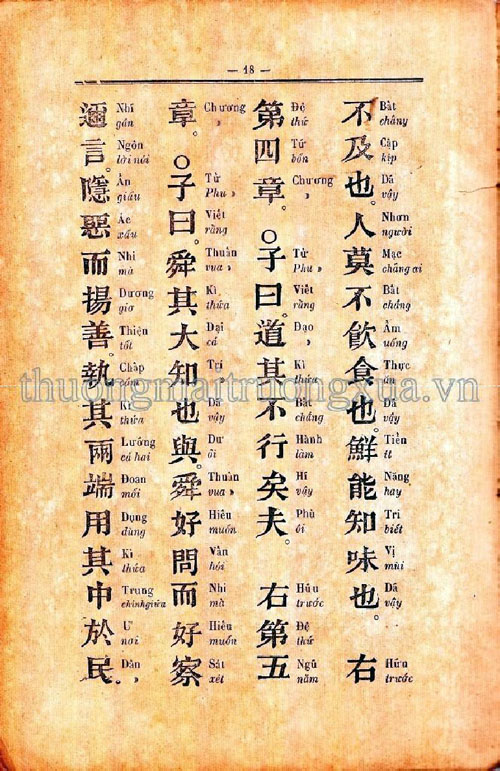 — 18 —
不及也。人莫不飲食也。鮮能知味也。 右
Bất chẳng
Cập kịp
Dã vậy
Nhơn người
Mạc chẳng ai
Bất chẳng
Ẩm uống
Thực ăn
Dã vậy
Tiển ít
Năng hay
Tri biết
Vị mùi
Dã vậy
Hữu trước
第四章。○子曰。道其不行矣夫。 右第五
Đệ thứ
Tứ bốn
Chương,
Tử Phu,
Viết rằng
Đạo,
Kì thửa
Bất chẳng
Hành làm
Hĩ vậy
Phù ôi
Hữu trước
Đệ thứ
Ngũ năm
章。○子曰。舜其大知也與。舜好問而好察
Chương,
Tử Phu,
Viết rằng
Thuấn vua,
Kì thửa
Đại cả
Trí
Dã vậy
Dư ôi
Thuấn vua,
Hiếu muốn
Vấn hỏi
Nhi mà
Hiếu muốn
Sát xét
邇言。隱惡而揚善。執其兩端用其中於民。
Nhĩ gần
Ngôn lời nói
Ẩn giấu
Ác xấu
Nhi mà
Dương giơ
Thiện tốt
Chấp cầm
Kì thửa
Lưỡng cả hai
Đoan mối
Dụng dùng
Kì thửa
Trung chính giữa
Ư nơi
Dân,
thuongmaitruongxua.vn